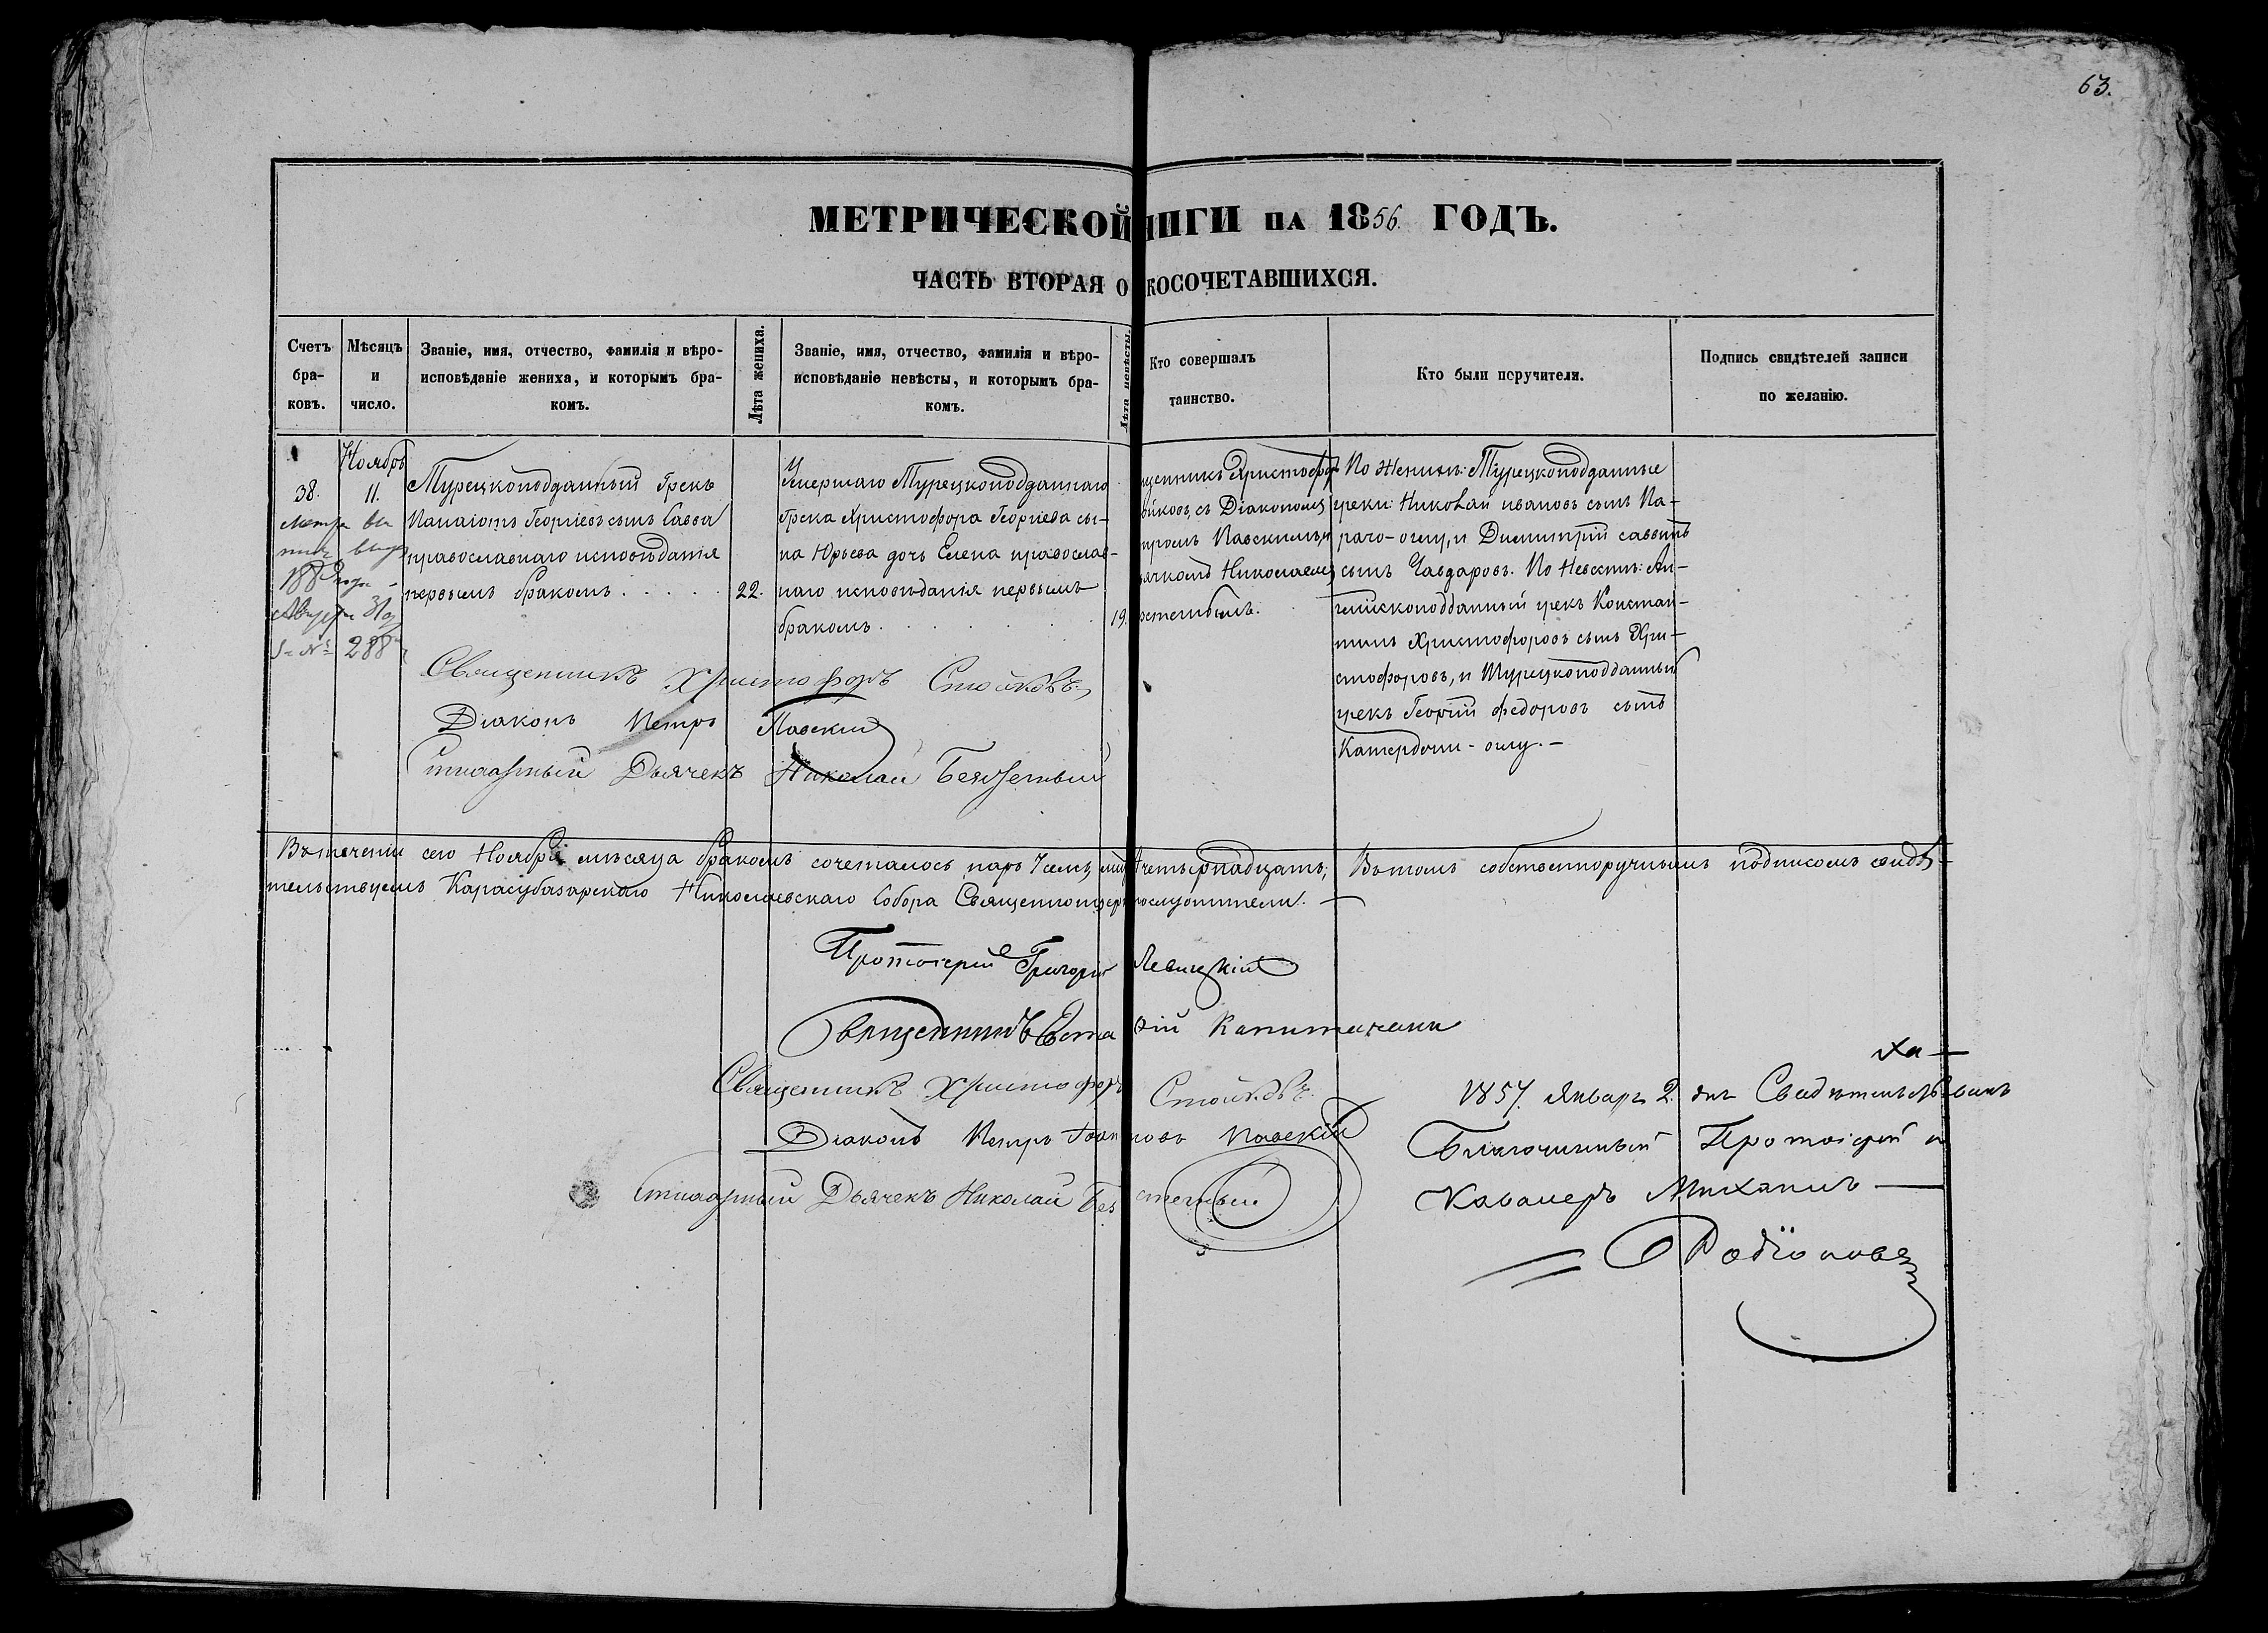 63.
МЕТРИЧЕСКОЙ НИГИ НА 1856. ГОДЪ.
ЧАСТЬ ВТОРАЯ О КОСОЧЕТАВШИХСЯ.
Счетъ бра-ковъ.
Мѣсяцъ и число.
Званіе, имя, отчество, фамилія и вѣро-
исповѣданіе жениха, и которымъ бра-
комъ.
Лѣта жениха.
Званіе, имя, отчество, фамилія и вѣро-
исповѣданіе невѣсты, и которымъ бра-
комъ.
Лѣта невѣсты.
Кто совершалъ
таинство.
Кто были поручители.
Подпись свидѣтелей записи
по желанію.
38.
Ноябрь
11.
1880 года
Августа 31
№ 288
Турецкоподданный Грекъ
Панаіотъ Георгіевъ сынъ Савва
православнаго исповѣданія
первымъ бракомъ
22.
Умершаго Турецкоподданнаго
Грека Христофора Георгіева сы-
на Юрьева дочь Елена православ-
наго исповѣданія первымъ
бракомъ
19.
щенникъ Христофоръ
ойковъ, съ Діакономъ
тромъ Павскимъ, и
ячкомъ Николаемъ
По Женихѣ: Турецкоподданные
греки: Николай ивановъ сынъ Па-
раго-оглу, и Димитрій саввинъ
сынъ Чавдаровъ. По Невестѣ: Ан-
глийскоподданный грекъ Констан-
тинъ Христофоровъ сынъ Хри-
стофоровъ, и Турецкоподданный
грекъ Георгій федоровъ сынъ
Катердчи-оглу.
Священникъ Христофоръ Стойковъ
Діаконъ Петръ Павскій
Стихарный Дьячекъ Николай
Въ теченіи сего Ноября мѣсяца бракомъ сочеталось паръ 7 семь, лицъ четырнадцать, Въ томъ собственноручнымъ подписомъ свидѣ-
тельствуемъ Карасубазарскаго Николаевскаго Собора Священноцерковнослужители.
Протоіерей Григорій Левицкій
Священникъ
Священникъ Христофоръ Стойковъ
Діаконъ Петръ Іоанновъ Павскій
Стихарный Дьячекъ Николай
1857. Января 2. дня Свидѣтельствовалъ
Благочинный Протоіерей и
Кавалеръ Михаилъ
Родіоновъ